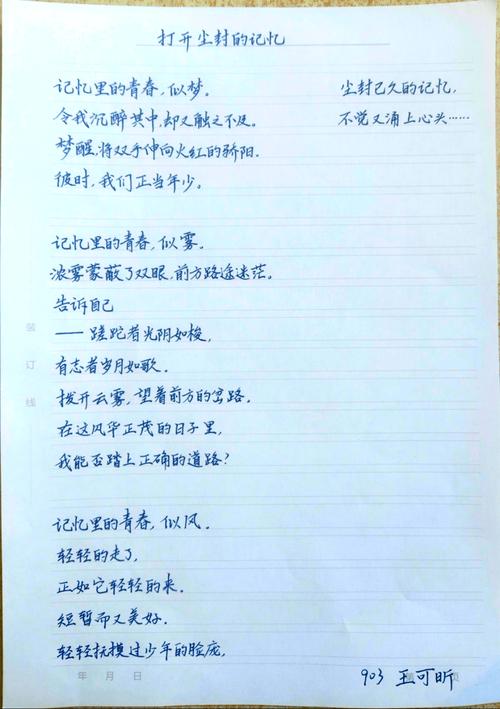 打开尘封的记忆
记忆里的青春，似梦。
令我沉醉其中，却又触之不及。
梦醒，将双手伸向火红的骄阳.
彼时，我们正当年少。
记忆里的青春，似雾.
浓雾蒙蔽了双眼，前方路途迷茫。
告诉自己
——蹉跎者光阴如梭，
有志者岁月如歌.
拨开云雾，望着前方的岔路.
在这风华正茂的日子里，
我能否踏上正确的道路？
记忆里的青春，似风.
轻轻的走了，
正如它轻轻的来.
短暂而又美好.
轻轻抚摸过少年的脸庞，
尘封已久的记忆，
不觉又涌上心头……
903 王可昕
装订线
年 月 日
第 页